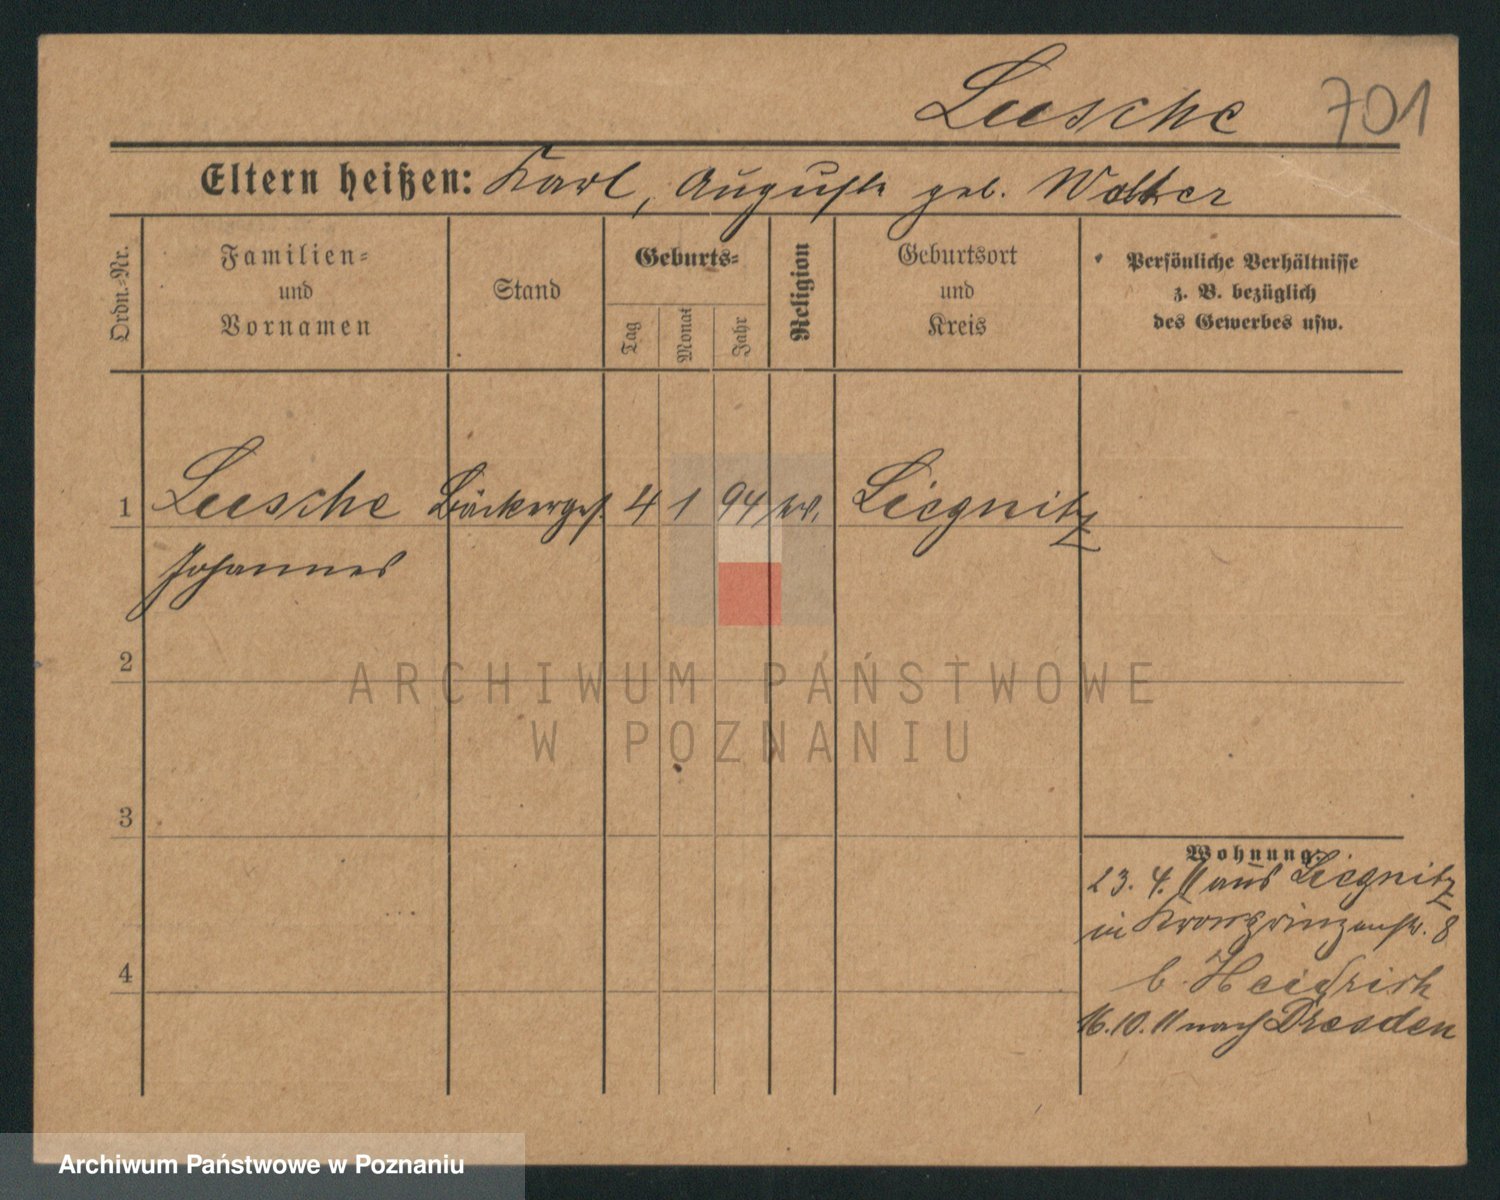 Leesche 701
Eltern heißen: Karl, Auguste geb. Wolter
Ordn.-Nr.
Familien-
und
Vornamen
Stand
Geburts-
Tag
Monat
Jahr
Religion
Geburtsort
und
Kreis
Persönliche Verhältnisse
z. B. bezüglich
des Gewerbes usw.
1 Leesche Bäckerges. 4 1 94 Liegnitz
Johannes
2
3
4
Wohnung.
23. 4. 11 aus Liegnitz
in Kronprinzenstr. 8
b. Heidrich
16. 10. 11 nach Dresden
ARCHIWUM PAŃSTWOWE
W POZNANIU
Archiwum Państwowe w Poznaniu